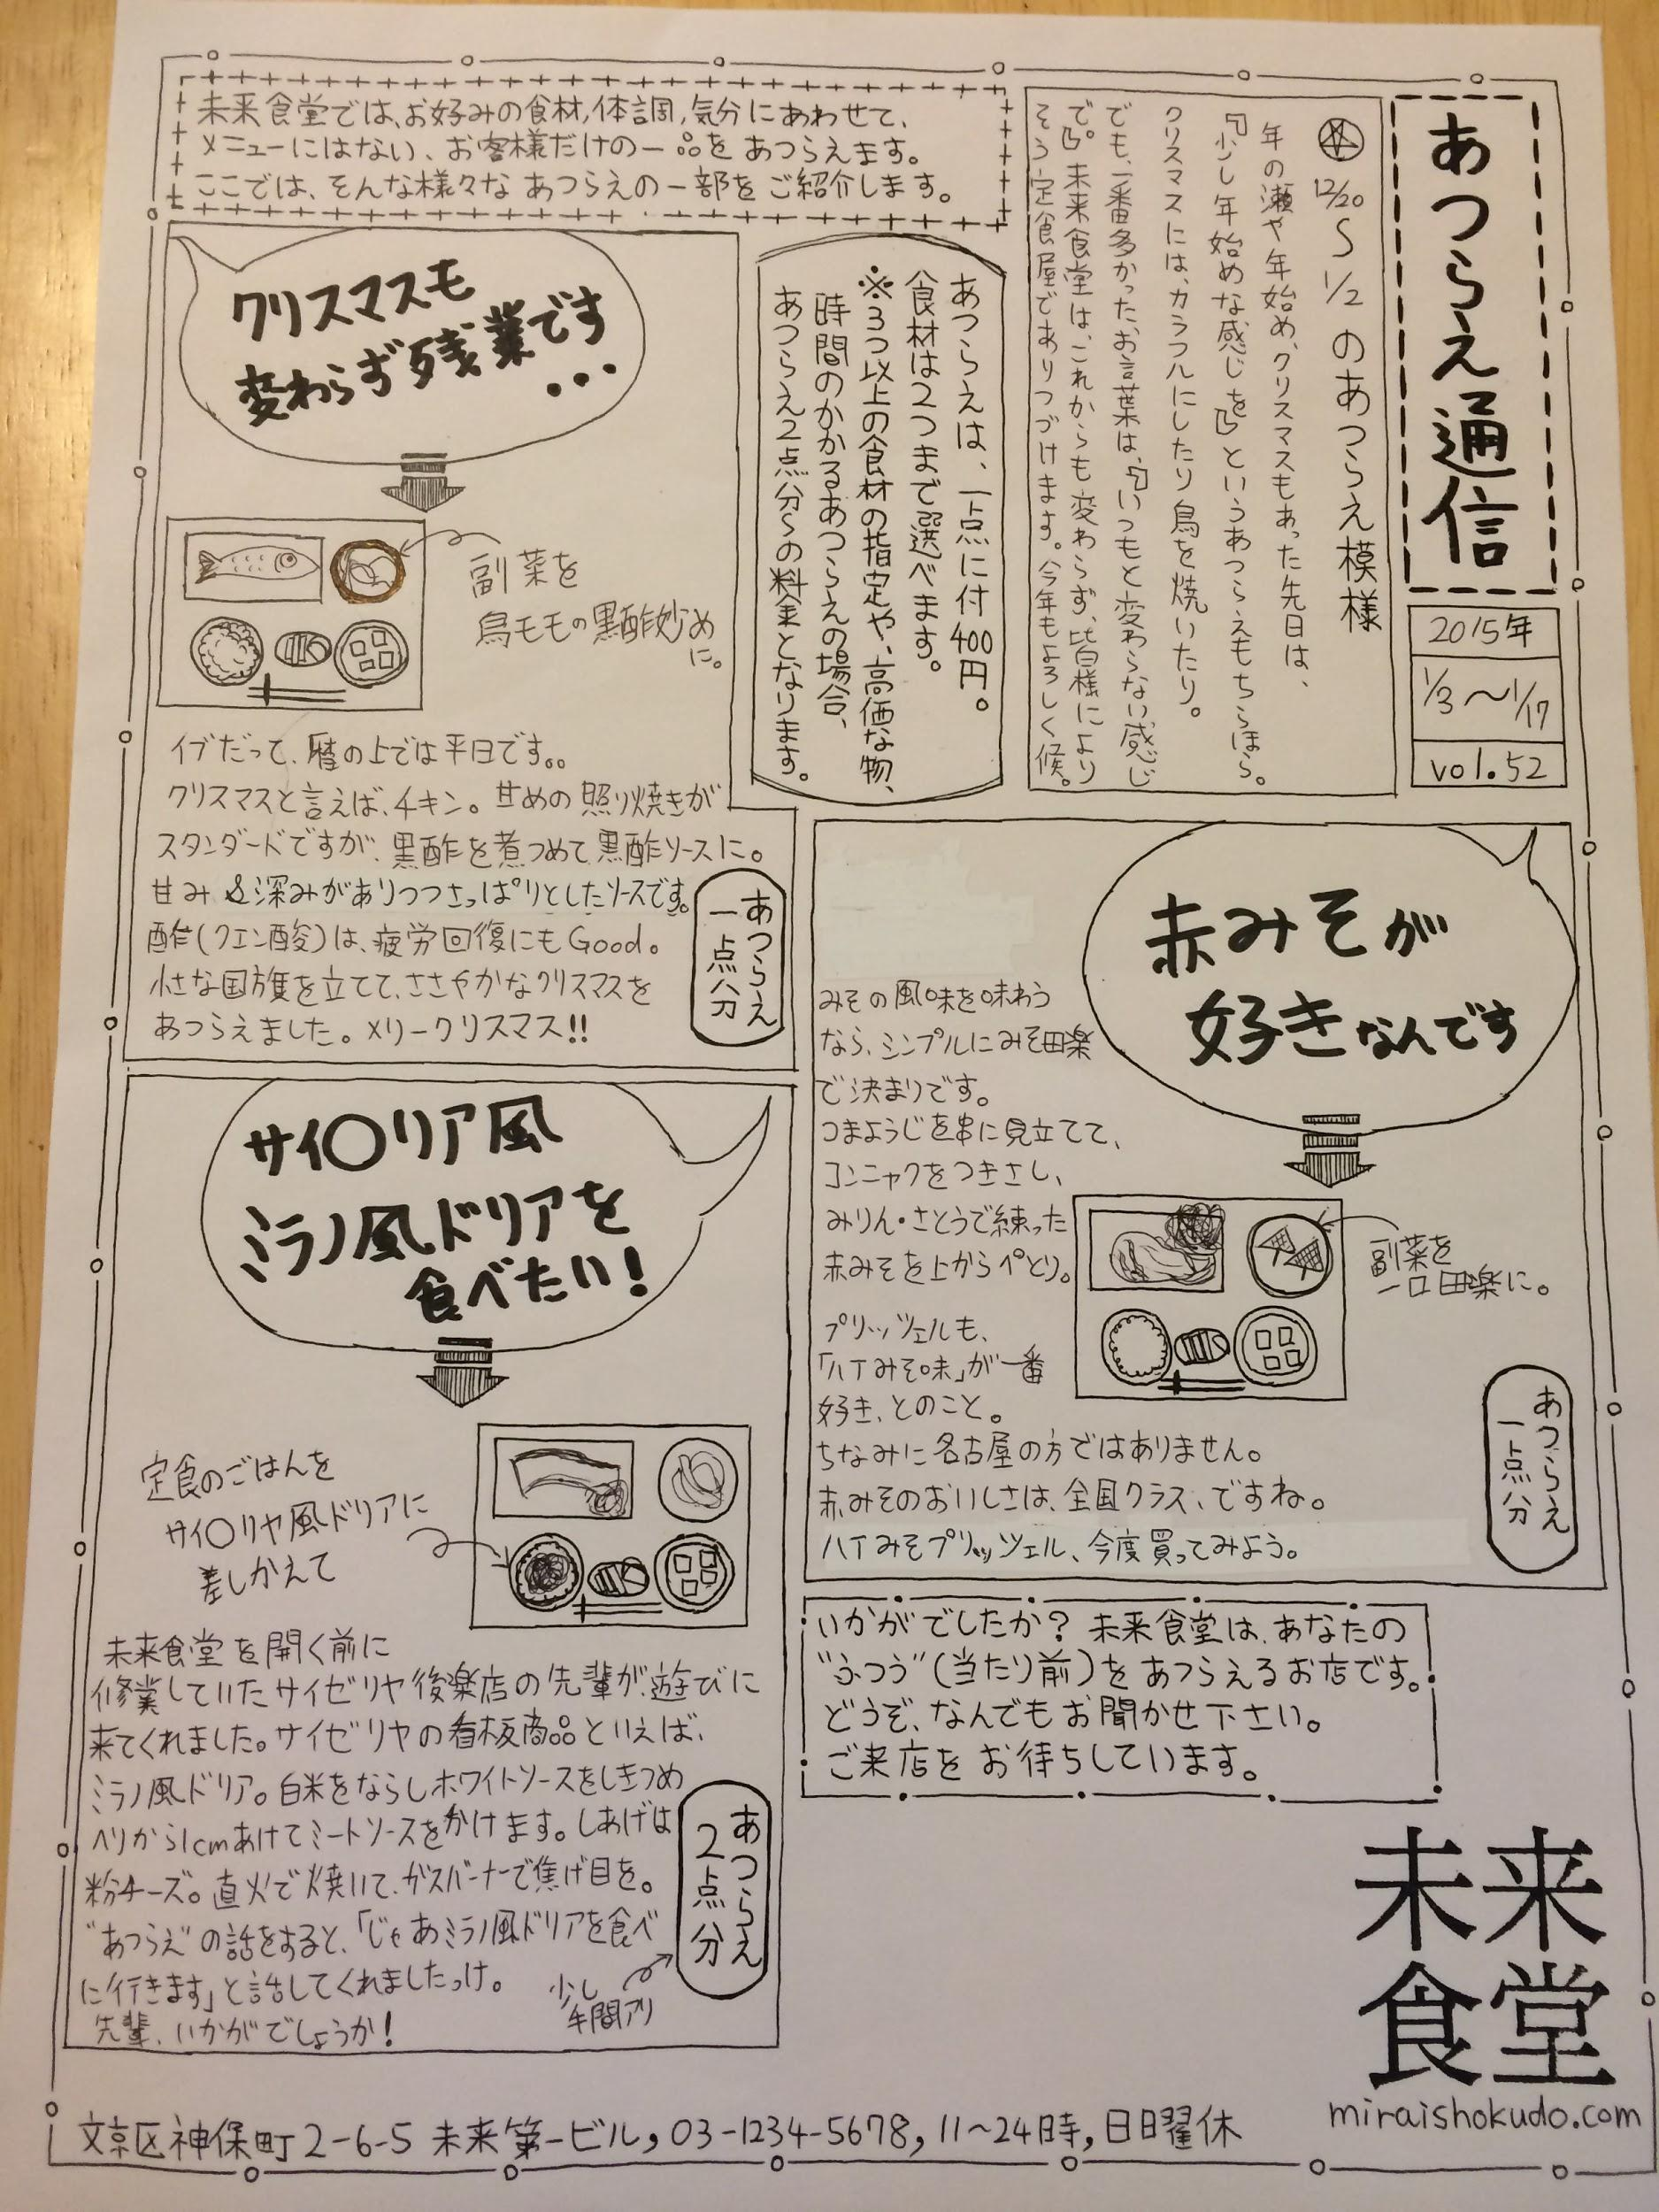 あつらえ通信
2015年
1/3〜1/17
vol.52
12/20〜1/2のあつらえ模様
年の瀬や年始め、クリスマスもあった先日は、
『少し年始めな感じを』というあつらえもちらほら。
クリスマスには、カラフルにしたり鳥を焼いたり。
でも、一番多かったお言葉は、『いつもと変わらない感じ
で。』未来食堂は、これからも変わらず、皆様により
そう定食屋でありつづけます。今年もよろしく候。
未来食堂では、お好みの食材,体調,気分にあわせて、
メニューにはない、お客様だけの一品をあつらえます。
ここでは、そんな様々なあつらえの一部をご紹介します。
あつらえは、一点に付400円。
食材は2つまで選べます。
※3つ以上の食材の指定や、高価な物、
時間のかかるあつらえの場合、
あつらえ2点分〜の料金となります。
クリスマスも
変わらず残業です
...
副菜を
鳥モモの黒酢炒め
に。
イブだって、暦の上では平日です。。
クリスマスと言えば、チキン。甘めの照り焼きが
スタンダードですが、黒酢を煮つめて黒酢ソースに。
甘み&深みがありつつさっぱりとしたソースです。
酢(クエン酸)は、疲労回復にもGood。
小さな国旗を立てて、ささやかなクリスマスを
あつらえました。メリークリスマス!!
あつらえ
一点分
赤みそが
好きなんです
副菜を
一口田楽に。
みその風味を味わう
なら、シンプルにみそ田楽
で決まりです。
つまようじを串に見立てて、
コンニャクをつきさし、
みりん・さとうで練った
赤みそを上からぺとり。
プリッツェルも、
「八丁みそ味」が一番
好き、とのこと。
ちなみに名古屋の方ではありません。
赤みそのおいしさは、全国クラス、ですね。
八丁みそプリッツェル、今度買ってみよう。
あつらえ
一点分
サイ〇リア風
ミラノ風ドリアを
食べたい!
定食のごはんを
サイ〇リヤ風ドリアに
差しかえて
未来食堂を開く前に
修業していたサイゼリヤ後楽店の先輩が、遊びに
来てくれました。サイゼリヤの看板商品といえば、
ミラノ風ドリア。白米をならしホワイトソースをしきつめ
ヘリから1cmあけてミートソースをかけます。しあげは
粉チーズ。直火で焼いて、ガスバーナーで焦げ目を。
"あつらえ"の話をすると、「じゃあミラノ風ドリアを食べ
に行きます」と話してくれましたっけ。
先輩、いかがでしょうか!
あつらえ
2点分
少し
手間アリ
いかがでしたか?未来食堂は、あなたの
"ふつう"(当たり前)をあつらえるお店です。
どうぞ、なんでもお聞かせ下さい。
ご来店をお待ちしています。
未来
食堂
miraishokudo.com
文京区神保町2-6-5 未来第一ビル, 03-1234-5678, 11〜24時, 日曜休